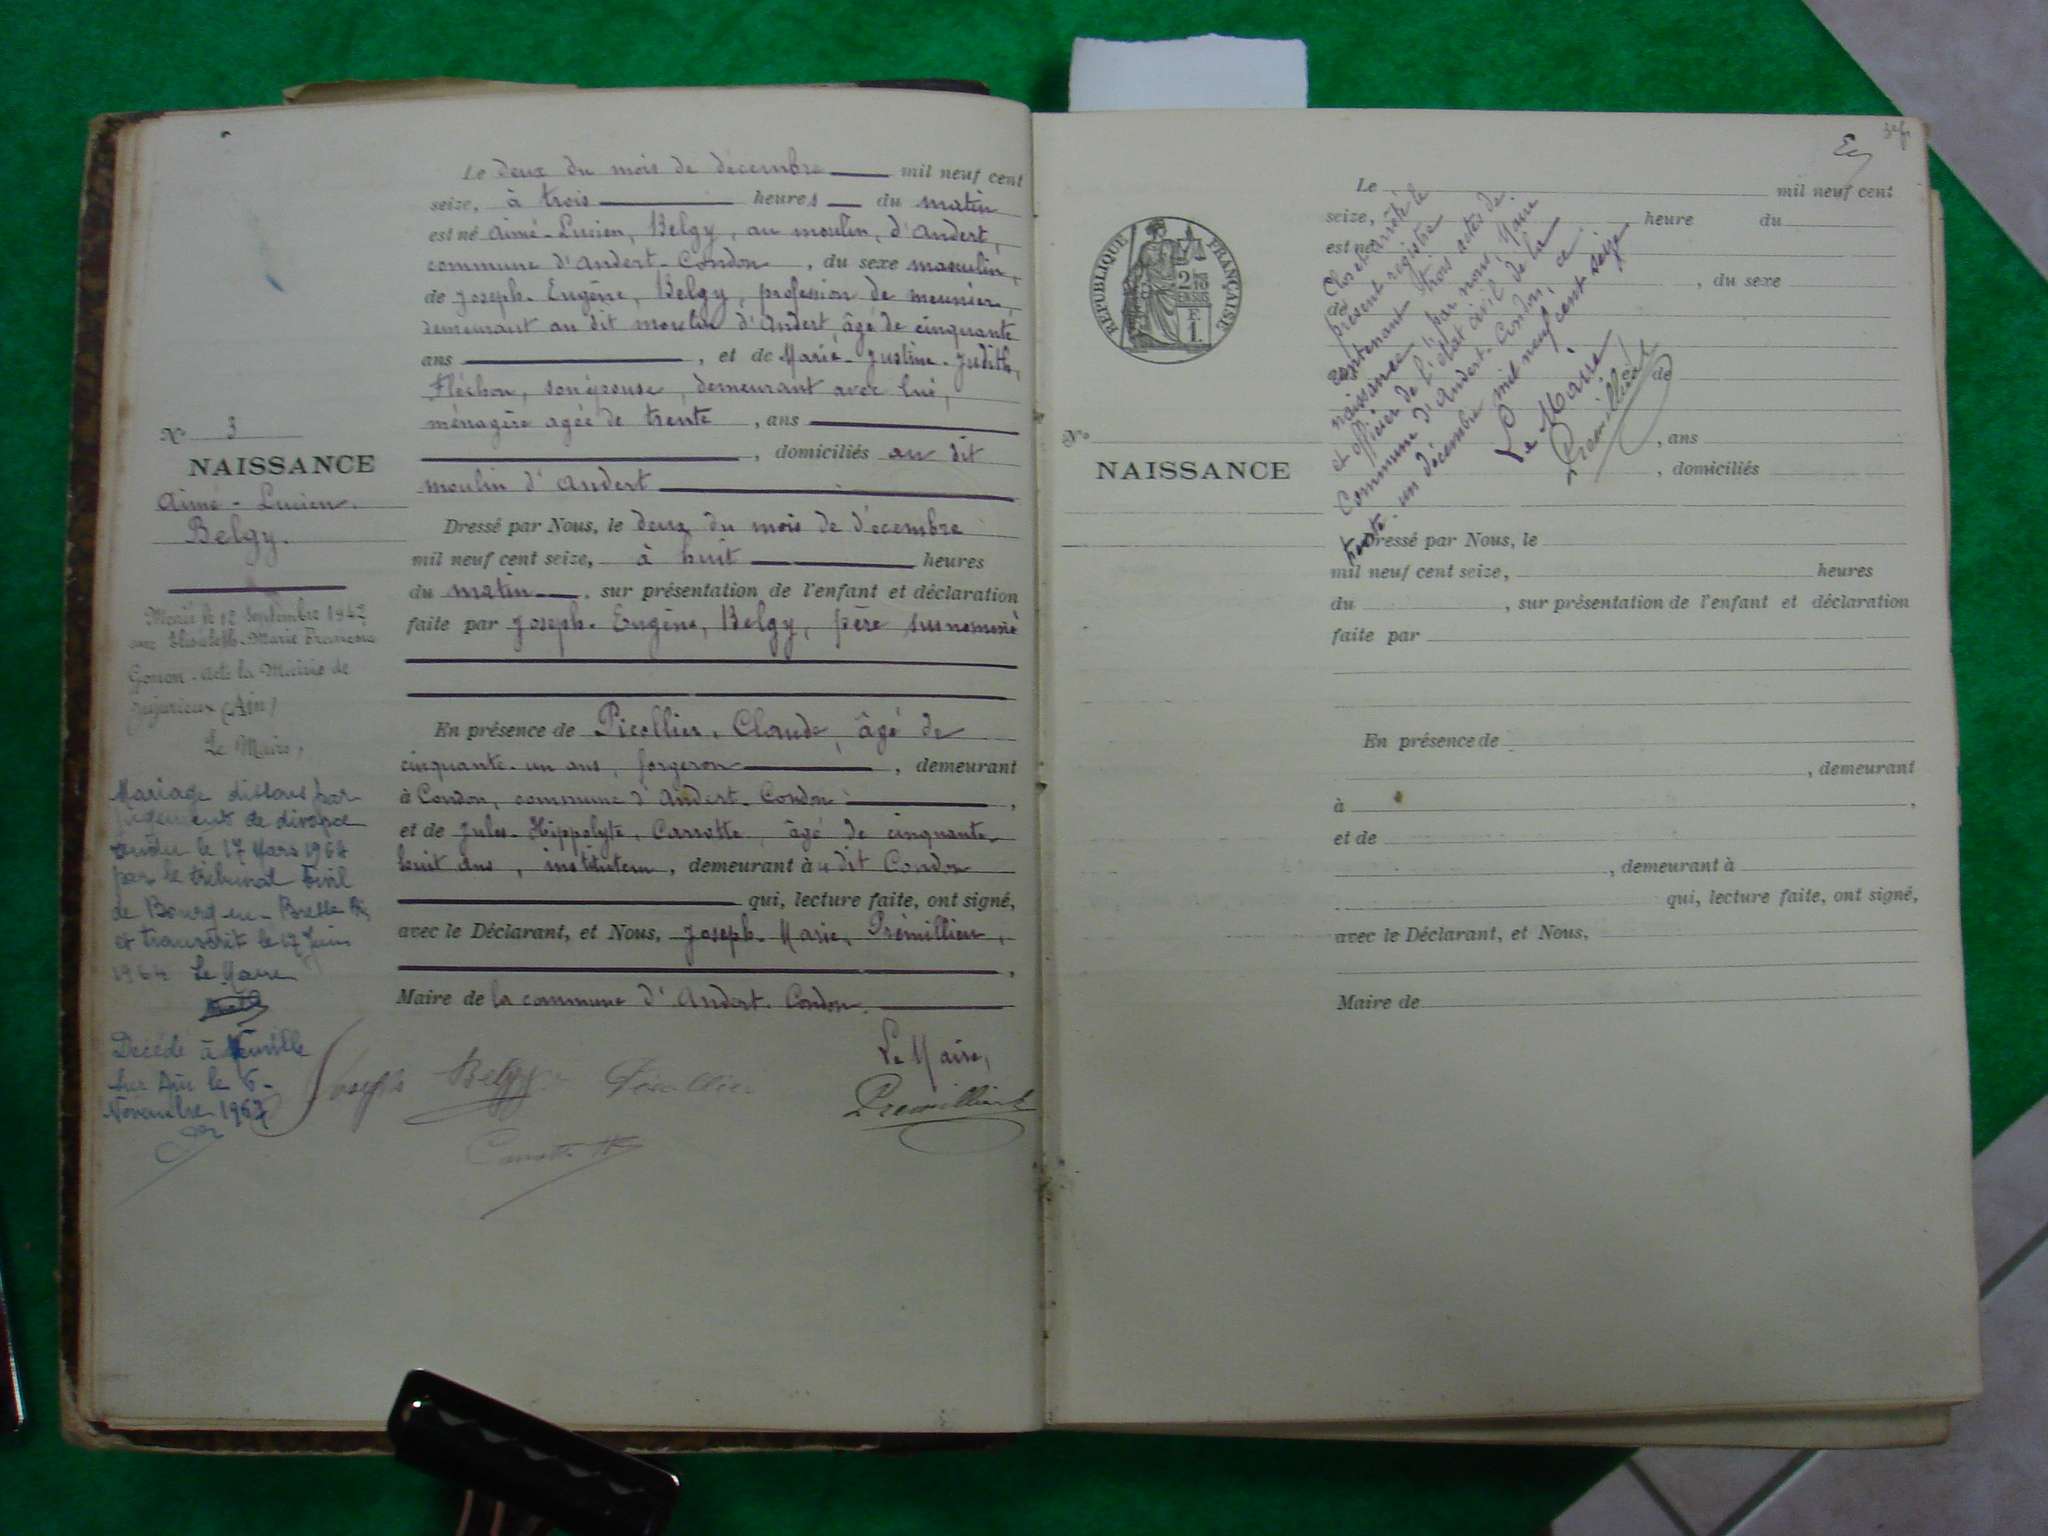 Le deux du mois de décembre mil neuf cent
seize, à trois heures du matin
est né Aimé-Lucien, Belgy, au moulin, d'Andert,
commune d'Andert-Condon, du sexe masculin,
de Joseph-Eugène, Belgy, profession de meunier,
demeurant au dit moulin d'Andert, âgé de cinquante
ans, et de Marie-Justine-Judith,
Fléchon, son épouse, demeurant avec lui,
ménagère agée de trente, ans
, domiciliés au dit
moulin d'Andert
Dressé par Nous, le deux du mois de décembre
mil neuf cent seize, à huit heures
du matin, sur présentation de l'enfant et déclaration
faite par Joseph-Eugène, Belgy, père susnommé
En présence de Picollier, Claude, âgé de
cinquante-un ans, forgeron, demeurant
à Condon, commune d'Andert-Condon,
et de Jules-Hippolyte, Carrotte, âgé de cinquante
huit ans, instituteur, demeurant à u dit Condon
qui, lecture faite, ont signé,
avec le Déclarant, et Nous, Joseph-Marie, Prémillieu,
,
Maire de la commune d'Andert-Condon.
Le Maire,
Joseph Belgy Picollier
Premillieu
Carrotte
N° 3
NAISSANCE
Aimé-Lucien.
Belgy.
Marié le 12 Septembre 1942
avec Elisabeth-Marie
Gonon. acte la Mairie de
Jujurieux (Ain)
Le Maire,
Mariage dissous par
jugement de divorce
rendu le 17 Mars 1964
par le tribunal Civil
de Bourg-en-Bresse
et transcrit le 17 Juin
1964 Le Maire
Décédé à Neuville
sur Ain le 6
Novembre 1967
RÉPUBLIQUE FRANÇAISE
2/10
EN SUS
1F.
Le mil neuf cent
seize, heure du
est né
, du sexe
de
et de
, ans
, domiciliés
N°
NAISSANCE
Clos et arrêté le
présent registre
contenant trois actes de
naissance, par nous, Maire
et officier de l'état civil de la
Commune d'Andert-Condon, ce
trente-un décembre mil neuf cent seize
Le Maire
Premillieu
Dressé par Nous, le
mil neuf cent seize, heures
du , sur présentation de l'enfant et déclaration
faite par
En présence de
, demeurant
à ,
et de
, demeurant à
qui, lecture faite, ont signé,
avec le Déclarant, et Nous,
Maire de